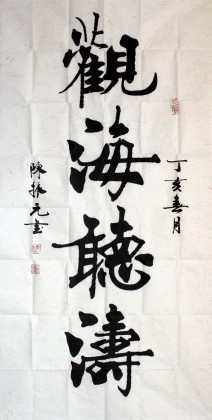 觀海聽濤
丁亥春月
陳振元書